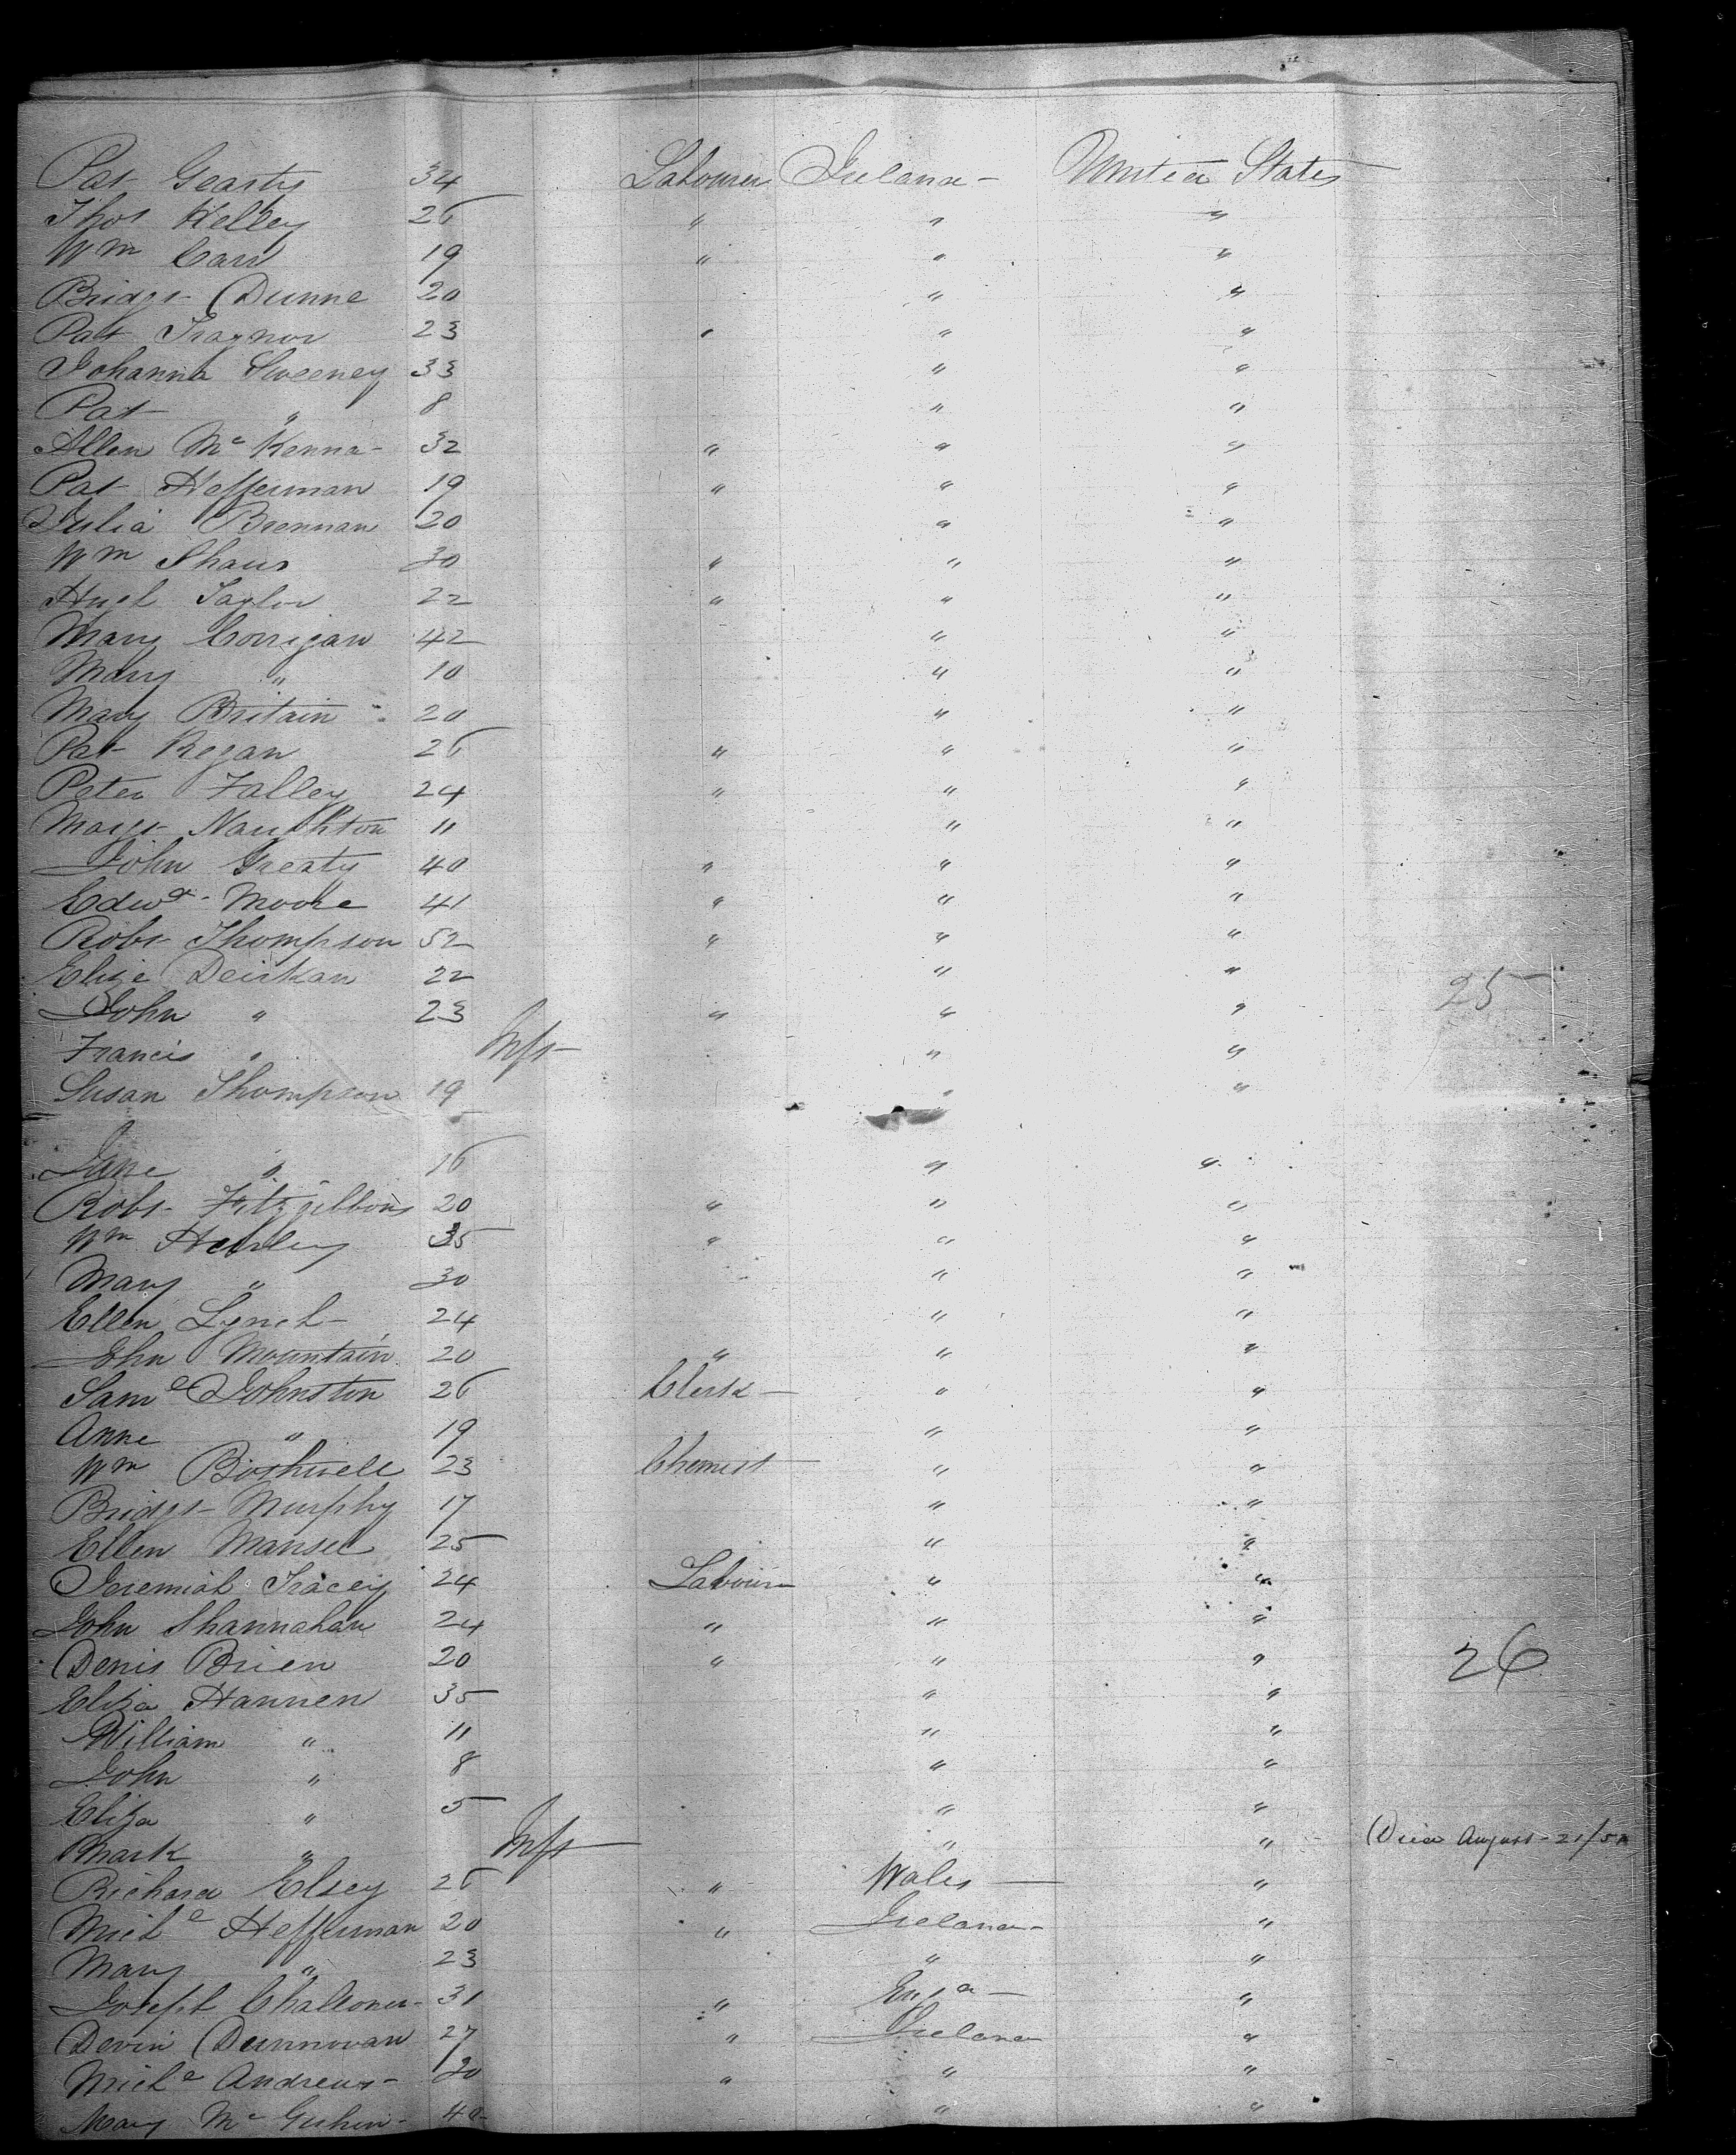 Pat Gearty 34 Labourer Ireland United States
Thos Kelley 26 " " "
Wm Carr 19 " " "
Bridgt Dunne 20 " "
Pat Traynor 23 " " "
Johanna Sweeney 33 " "
Pat " 8 " "
Allen McKenna 32 " " "
Pat Heffernan 19 " " "
Julia Brennan 20 " "
Wm Shaw 30 " " "
Hugh Taylor 22 " " "
Mary Corrigan 42 " "
Mary " 10 " "
Mary Britain 20 " "
Pat Regan 26 " " "
Peter Falley 24 " " "
Margt Naughton 11 " "
John Greaty 40 " " "
Edwd Moore 41 " " "
Robt Thompson 52 " " "
Eliza Deirkan 22 " "
John " 23 " " " 25
Francis " Inft " "
Susan Thompson 19 " "
Jane " 16 " "
Robt Fitzgibbons 20 " " "
Wm Hurley 35 " " "
Mary " 30 " "
Ellen Lynch 24 " "
John Mountain 20 " " "
Saml Johnston 26 Clerk " "
Anne " 19 " "
Wm Bothwell 23 Chemist " "
Bridgt Murphy 17 " "
Ellen Mansel 25 " "
Jeremiah Tracey 24 Labourer " "
John Shannahan 24 " " "
Denis Brien 20 " " " 26
Eliza Hannen 35 " "
William " 11 " "
John " 8 " "
Eliza " 5 " "
Mark " Inft " " Died August 21/5
Richard Elsey 26 " Wales "
Michl Heffernan 20 " Ireland "
Mary " 23 " "
Joseph Challoner 31 " Engd "
Devin Dunnovan 27 " Ireland "
Michl Andrews 20 " " "
Mary Mc 40 " "